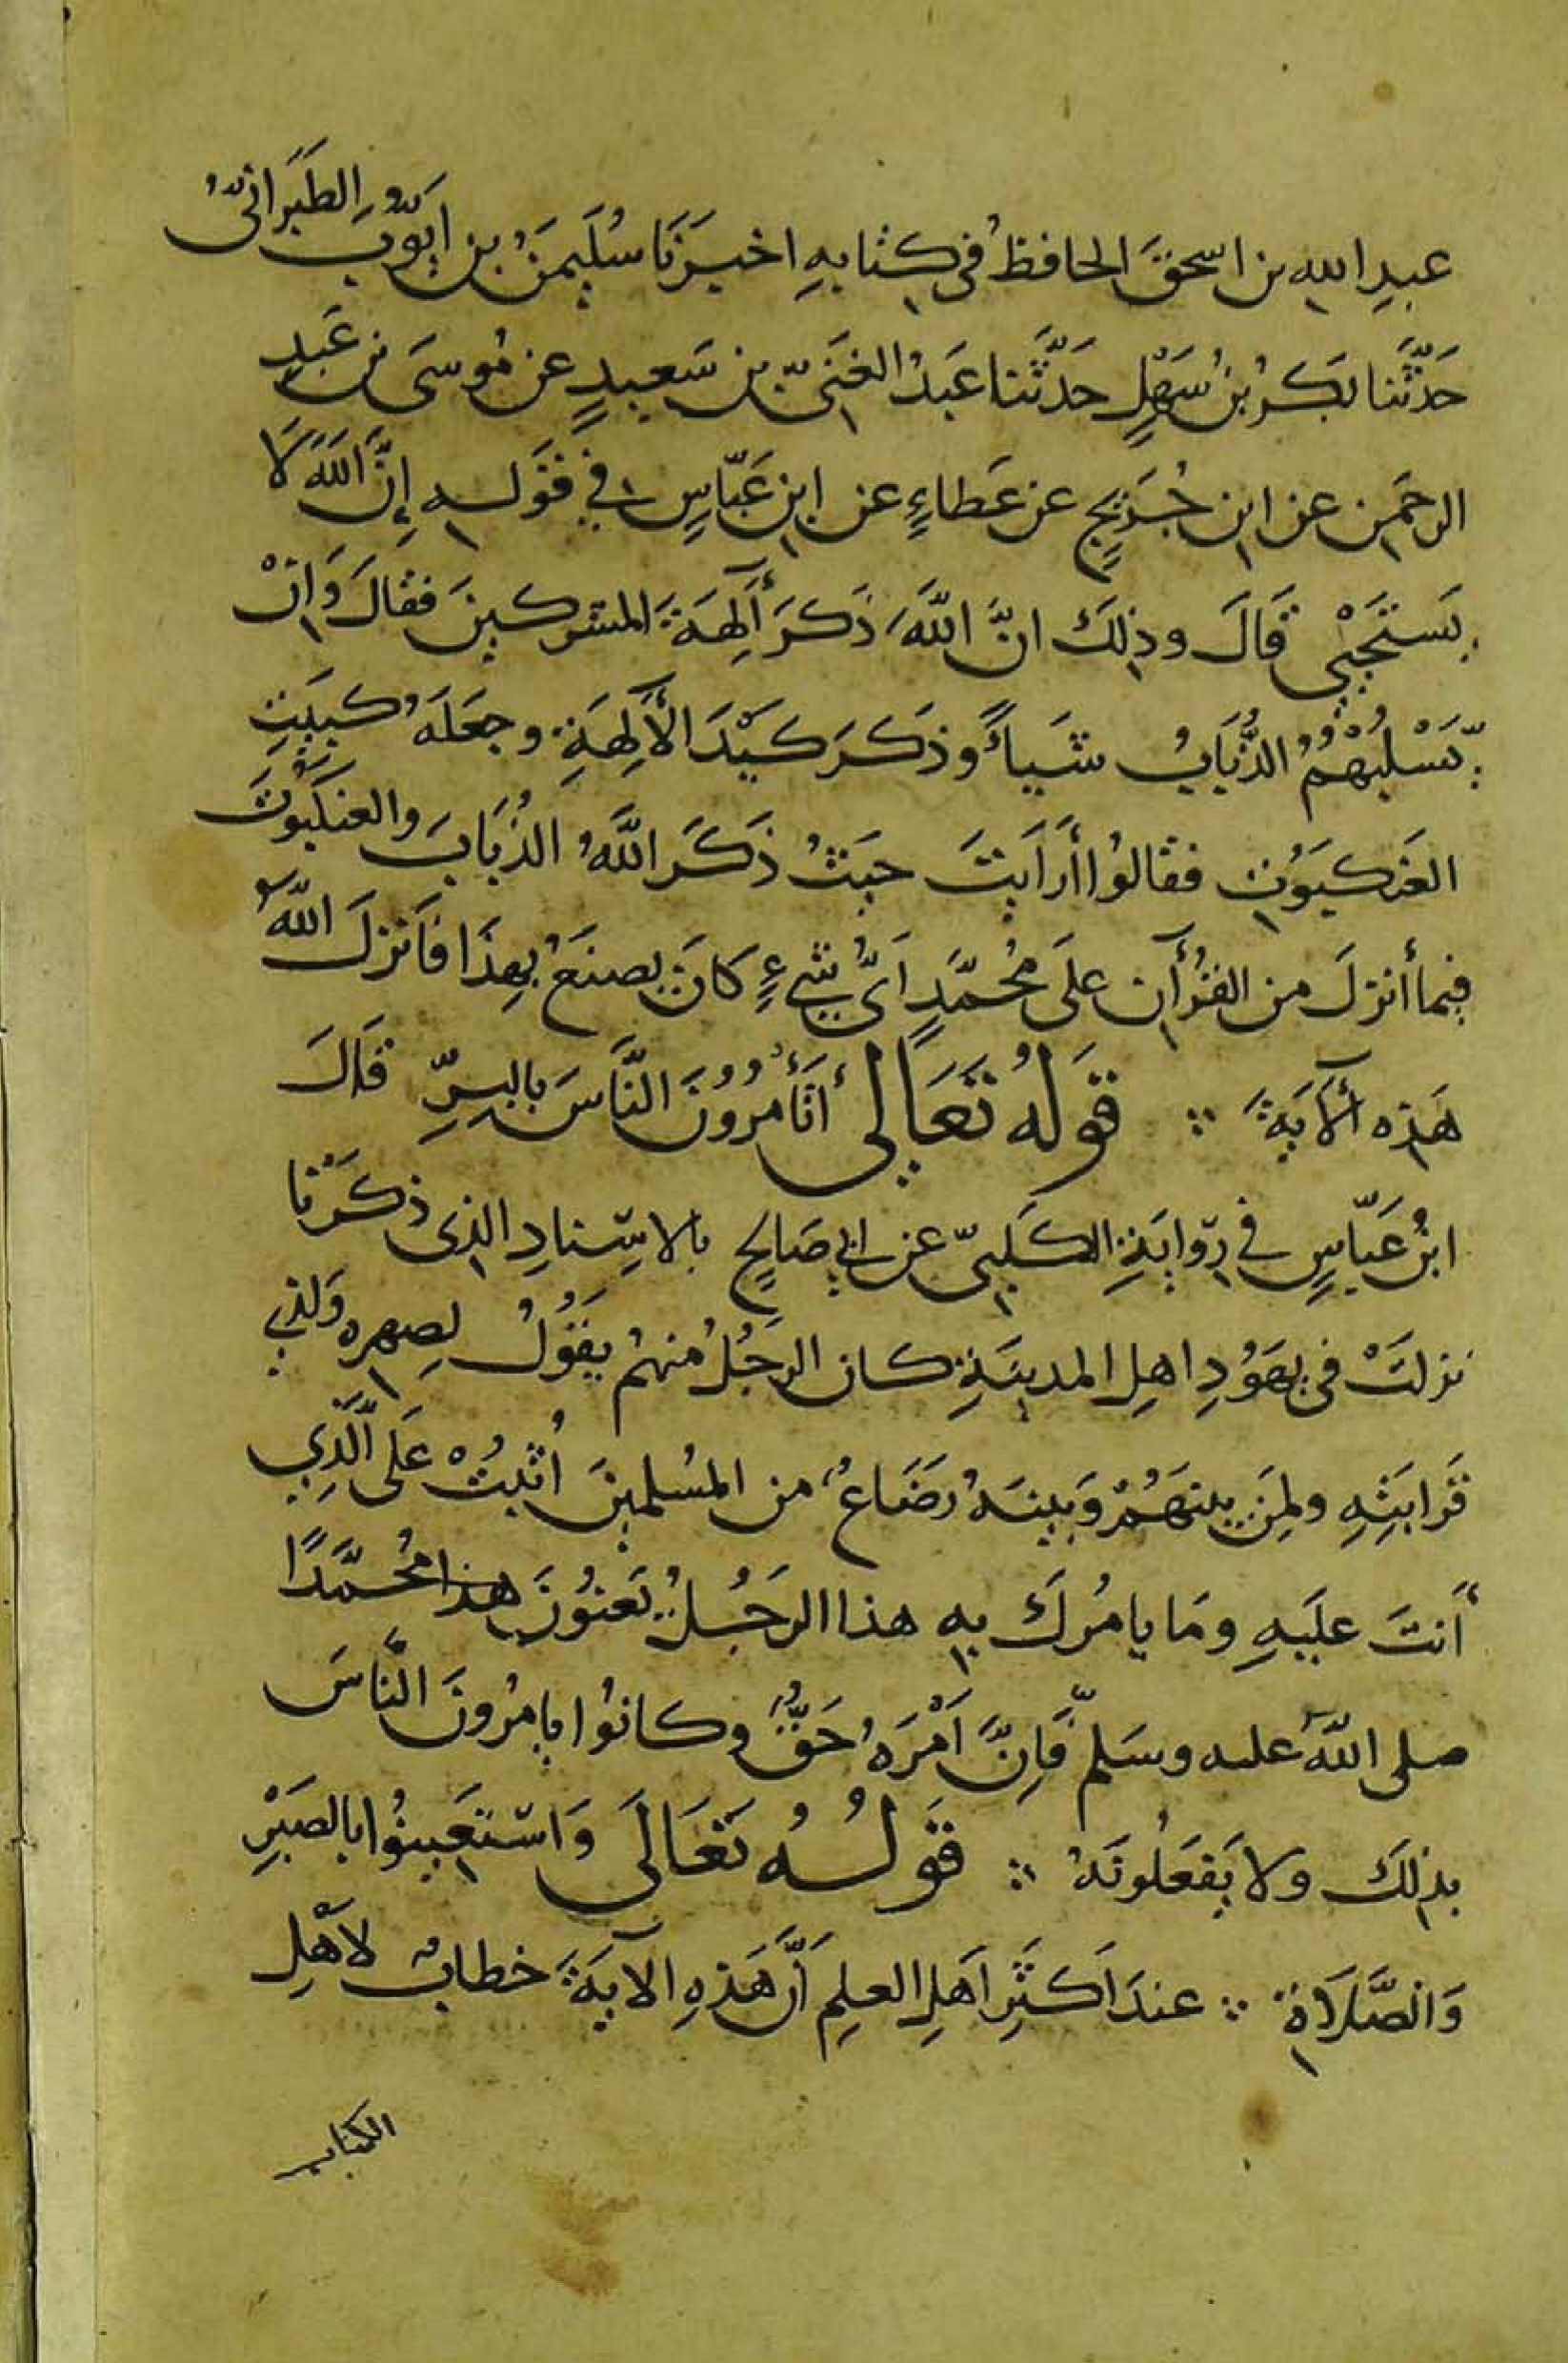 عبدِ اللهِ بن اسحقَ الحافظُ فى كتابهِ اخبرَنَا سُلَيمنُ بن ايّوبَ الطبَرَانىُّ
حَدَّثَنا بكرُ بنُ سَهْلٍ حَدَّثَنا عَبدُ الغَنىّ بن سَعيدٍ عن مُوسَى بن عَبدِ
الرحمن عن ابن جُرَيجٍ عن عَطاءٍ عن ابن عَبّاسٍ في قَوله إنَّ اللهَ لَا
يَستَحْيِي قَالَ وذلِكَ انَّ اللهَ ذكَرَ آلِهَةَ المشركينَ فقالَ وَانْ
يَسْلُبْهُمُ الذُّبَابُ شيأً وذَكَرَ كَيْدَ الآلِهَةِ وجعَلَهُ كبَيْتِ
العَنكبوُتِ فقالوُا أرَأَيتَ حيَثُ ذَكَرَ اللهُ الذُبَابَ والعَنكَبُوتَ
فيما أنزلَ من القُرآن علَى مُحَمَّدٍ اَىَّ شيءٍ كَانَ يصنَعُ بهِذَا فَانزلَ اللهُ
هَذه الآيَةَ ∴ قَولهُ تَعَالى أتَأمُرُونَ النَّاسَ بالبِرِّ قَالَ
ابنُ عَبّاسٍ في رِوَايَةِ الكَلبىّ عن ابي صَالحٍ بالاِسْنادِ الذى ذكَرْنا
نزلتْ فى يهَوُدِ اهلِ المدينَةِ كان الرجُلُ منهمُ يقَوُلُ لصهره ولذِي
قَرابَتِهِ ولِمَن بينهَمُ وَبينهُ رَضَاعُ من المُسلمينَ اُثبُتْ عَلى الَّذِي
أنتَ علَيهِ ومَا يامُرُكَ بهِ هذا الرجُلُ يَعنوُنَ هذا مُحمَّدًا
صلى اللهُ عليه وسَلم فَاِنَّ اَمْرَهُ حَقُّ وكانوُا يامُرُونَ النَّاسَ
بذلكَ ولا يَفعَلُونَهُ ∴ قَولُهُ تَعَالَى وَاسْتَعِينوُا بالصَبْرِ
وَالصَّلَاةِ ∴ عندَ اَكثَرِ اَهلِ العِلمِ اَنَّ هَذِهِ الآيَةَ خطابُ لاَهْلِ
الكتاب